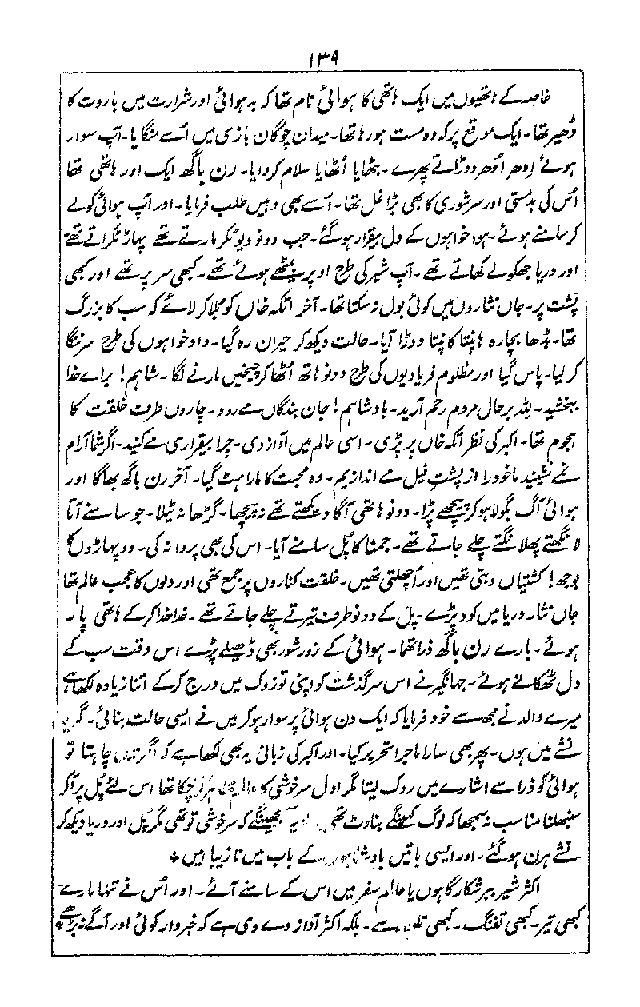 ۱۳۹
خاصہ کے ہاتھیوں میں ایک ہاتھی کا ہوائی نام تھا کہ بدہوائی اور شرارت میں باروت کا
ڈھیر تھا۔ ایک موقع پر کہ وہ مست ہو رہا تھا۔ میدان چوگان بازی میں اُسے منگایا۔ آپ سوار
ہوئے اِدھر اُدھر دوڑاتے پھرے۔ بٹھایا اُٹھایا سلام کروایا۔ رن باگھ ایک اور ہاتھی تھا
اُس کی بدمستی اور سرشوری کا بھی بڑا غل تھا۔ اُسے بھی وہیں طلب فرمایا۔ اور آپ ہوائی کو لے
کر سامنے ہوئے۔ ہوا خواہوں کے دل بیقرار ہو گئے۔ جب دونو دیو ٹکر مارتے تھے پہاڑ ٹکراتے تھے
اور دریا جھکولے کھاتے تھے۔ آپ شیر کی طرح اوپر بیٹھے ہوئے تھے۔ کبھی سر پر تھے اور کبھی
پشت پر۔ جاں نثاروں میں کوئی بول نہ سکتا تھا۔ آخر اتکہ خاں کو بلا کر لائے کہ سب کا بزرگ
تھا۔ بڈھا بچارہ ہانپتا کانپتا دوڑا آیا۔ حالت دیکھ کر حیران رہ گیا۔ داد خواہوں کی طرح سر ننگا
کر لیا۔ پاس گیا اور مظلوم فریادیوں کی طرح دونو ہاتھ اُٹھا کر چیخیں مارنے لگا۔ شاہم! برائے خدا
بخشید۔ للہ بر حال مردم رحم آرید۔ بادشاہم! جان بندگاں مے رود۔ چاروں طرف خلقت کا
ہجوم تھا۔ اکبر کی نظر اتکہ خاں پر پڑی۔ اسی عالم میں آواز دی۔ چرا بیقراری مے کنید۔ اگر شما آرام
نمے نشینید ما خود را از پشتِ فیل مے اندازیم۔ وہ محبت کا مارا ہٹ گیا۔ آخر رن باگھ بھاگا اور
ہوائی آگ بگولا ہو کر پیچھے پڑا۔ دونو ہاتھی آگا دیکھتے تھے نہ پیچھا۔ گڑھا نہ ٹیلا۔ جو سامنے آتا
لانگھتے پھلانگتے چلے جاتے تھے۔ جمنا کا پل سامنے آیا۔ اس کی بھی پروا نہ کی۔ دو پہاڑوں کا
بوجھ! کشتیاں دبتی تھیں اور اُچھلتی تھیں۔ خلقت کناروں پر جمع تھی اور دلوں کا عجب عالم تھا
جاں نثار دریا میں کود پڑے۔ پل کے دونو طرف تیرتے چلے جاتے تھے۔ خدا خدا کر کے ہاتھی پار
ہوئے۔ بارے رن باگھ ذرا تھما۔ ہوائی کے زور شور بھی ڈھیلے پڑے اس وقت سب کے
دل ٹھکانے ہوئے۔ جہانگیر نے اس سرگذشت کو اپنی توزوک میں درج کر کے اتنا زیادہ لکھا ہے
میرے والد نے مجھ سے خود فرمایا کہ ایک دن ہوائی پر سوار ہو کر میں نے ایسی حالت بنائی۔ گویا
نشے میں ہوں۔ پھر بھی سارا ماجرا تحریر کیا۔ اور اکبر کی زبانی یہ بھی لکھا ہے کہ اگر میں چاہتا تو
ہوائی کو ذرا سے اشارے میں روک لیتا مگر اول سرخوشی کا عالم ظاہر کر چکا تھا اس لئے پل پر آ کر
سنبھلنا مناسب نہ سمجھا کہ لوگ کہینگے بناوٹ تھی سمجھینگے کہ سرخوشی تو تھی مگر پل اور دریا دیکھ کر
نشے ہرن ہو گئے۔ اور ایسی باتیں بادشاہوں کے باب میں نازیبا ہیں۔
اکثر شیر ببر شکار گاہوں یا عالم سفر میں اس کے سامنے آئے۔ اور اُس نے تنہا مارے
کبھی تیر۔ کبھی تفنگ۔ کبھی تلوار سے۔ بلکہ اکثر آواز دے دی ہے کہ خبردار کوئی اور آگے نہ بڑھے۔